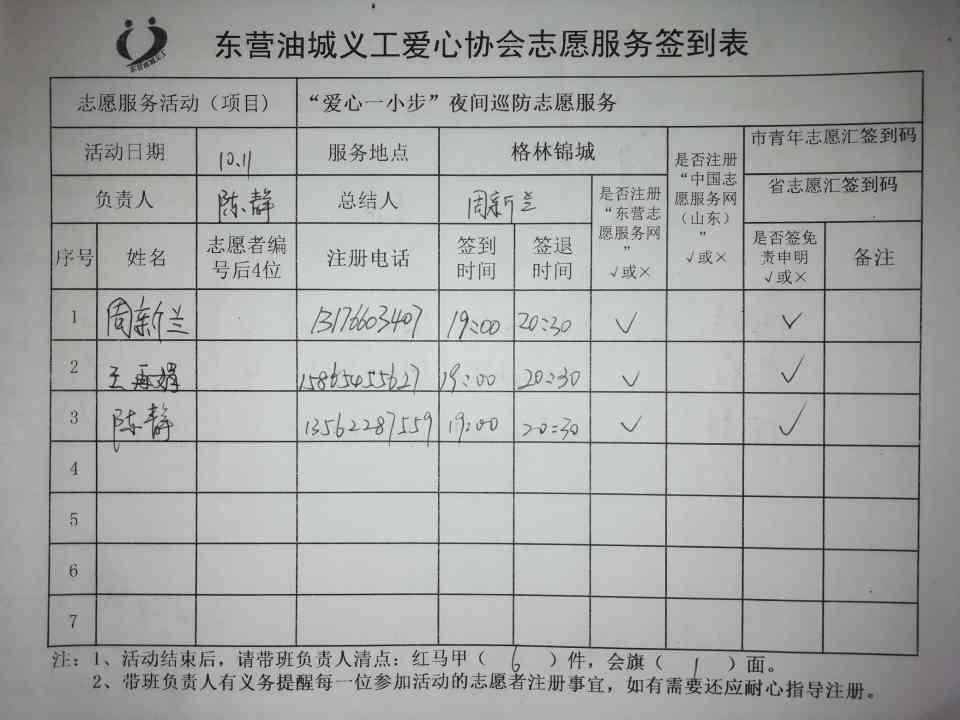 东营油城义工
东营油城义工爱心协会志愿服务签到表
志愿服务活动（项目） “爱心一小步”夜间巡防志愿服务
活动日期 10.11 服务地点 格林锦城 是否注册“中国志愿服务网（山东）” √或× 市青年志愿汇签到码
负责人 陈静 总结人 周新兰 是否注册“东营志愿服务网” √或× 省志愿汇签到码
序号 姓名 志愿者编号后4位 注册电话 签到时间 签退时间 是否签免责申明 √或× 备注
1 周新兰 13176603407 19:00 20:30 √ √
2 王再娟 15865455627 19:00 20:30 √ √
3 陈静 13562287559 19:00 20:30 √ √
4
5
6
7
注：1、活动结束后，请带班负责人清点：红马甲（ 6 ）件，会旗（ 1 ）面。
2、带班负责人有义务提醒每一位参加活动的志愿者注册事宜，如有需要还应耐心指导注册。